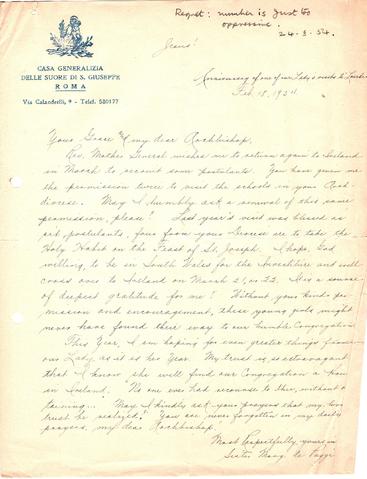 Regret: number is just too
oppressive.
24-3-54.
Jesus!
CASA GENERALIZIA
DELLE SUORE DI S. GIUSEPPE
ROMA
Via Calandrelli, - Telef. 580177
Anniversary of one of our Lady's visits to
Feb. 18, 1954
Your Grace & my dear Archbishop,
Rev. Mother General wishes me to return again to Ireland
in March to recruit some postulants. You have given me
the permission twice to visit the schools in your Arch
diocese. May I humbly ask a renewal of this same
permission, please! Last year's visit was blessed as
postulants, four from your Diocese are to take the
Holy Habit on the Feast of St. Joseph. I hope, God
willing, to be in South Wales for the Investiture and will
cross over to Ireland on March 21, or 22. It is a source
of deepest gratitude for me! Without your kind per
mission and encouragement, these young girls might
never have found their way to our humble Congregation.
This Year, I am hoping for even greater things from
our Lady as it is her Year. My trust is so extravagant
that I know she will find our Congregation a
in Ireland. "No one ever had recourse to thee, without o
taining..." May I kindly ask your prayers that my
trust be realized? You are never forgotten in my daily
prayers, my dear Archbishop.
Most Respectfully, yours in
Sister Mary